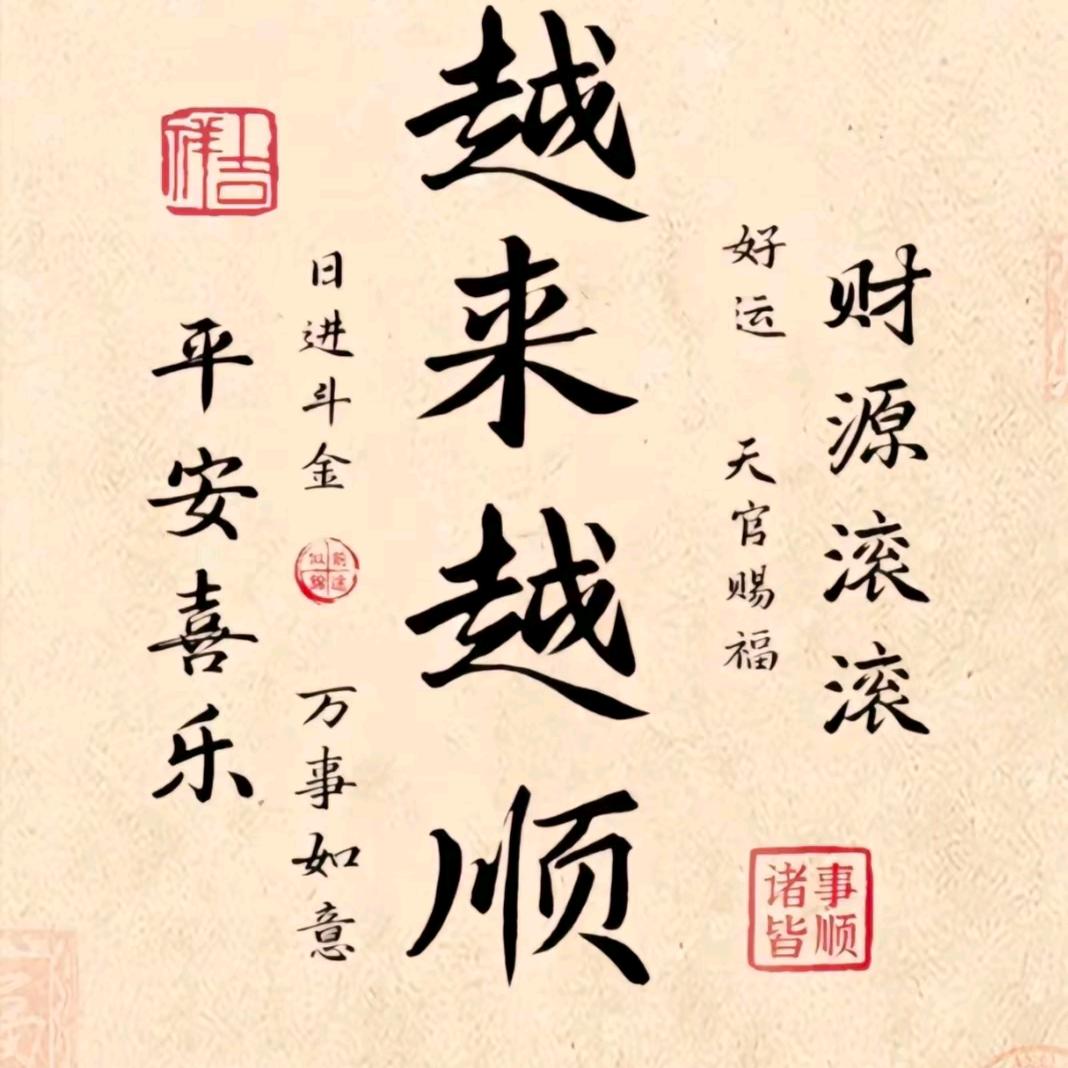 财源滚滚
好运 天官赐福
事顺
诸皆
越来越顺
日进斗金
前途
似锦
万事如意
吉
祥
平安喜乐